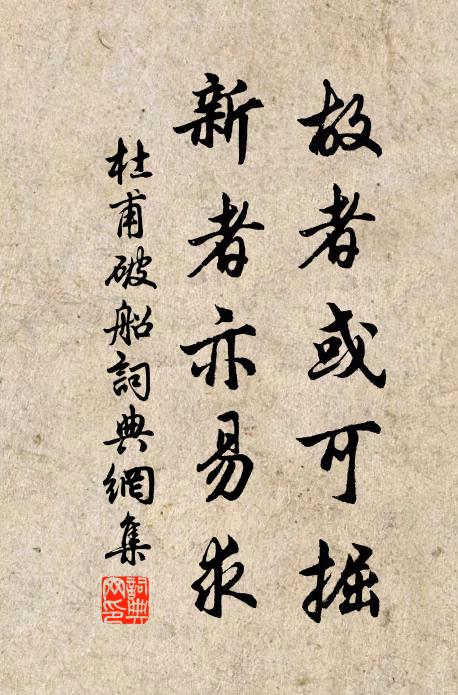 故者或可掘
新者亦易求
杜甫破船詞典網集
詞典網印